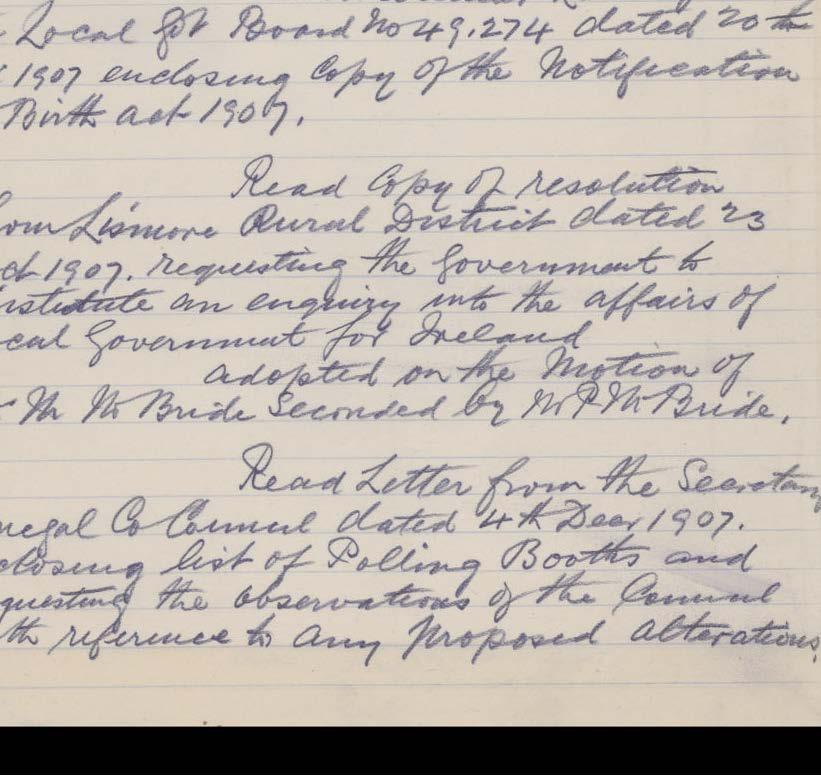 Local Govt Board No 49,274 dated 20th
1907 enclosing Copy of the Notification
Birth act 1907.
Read Copy of resolution
om Lismore Rural District dated 23
ct 1907. requesting the Government to
nstitute an enquiry into the affairs of
cal Government for Ireland
adopted on the Motion of
Mr McBride Seconded by Mr P McBride.
Read Letter from the Secretary
negal Co Council dated 4th Decr 1907.
closing list of Polling Booths and
questing the observations of the Council
th reference to any proposed alterations.